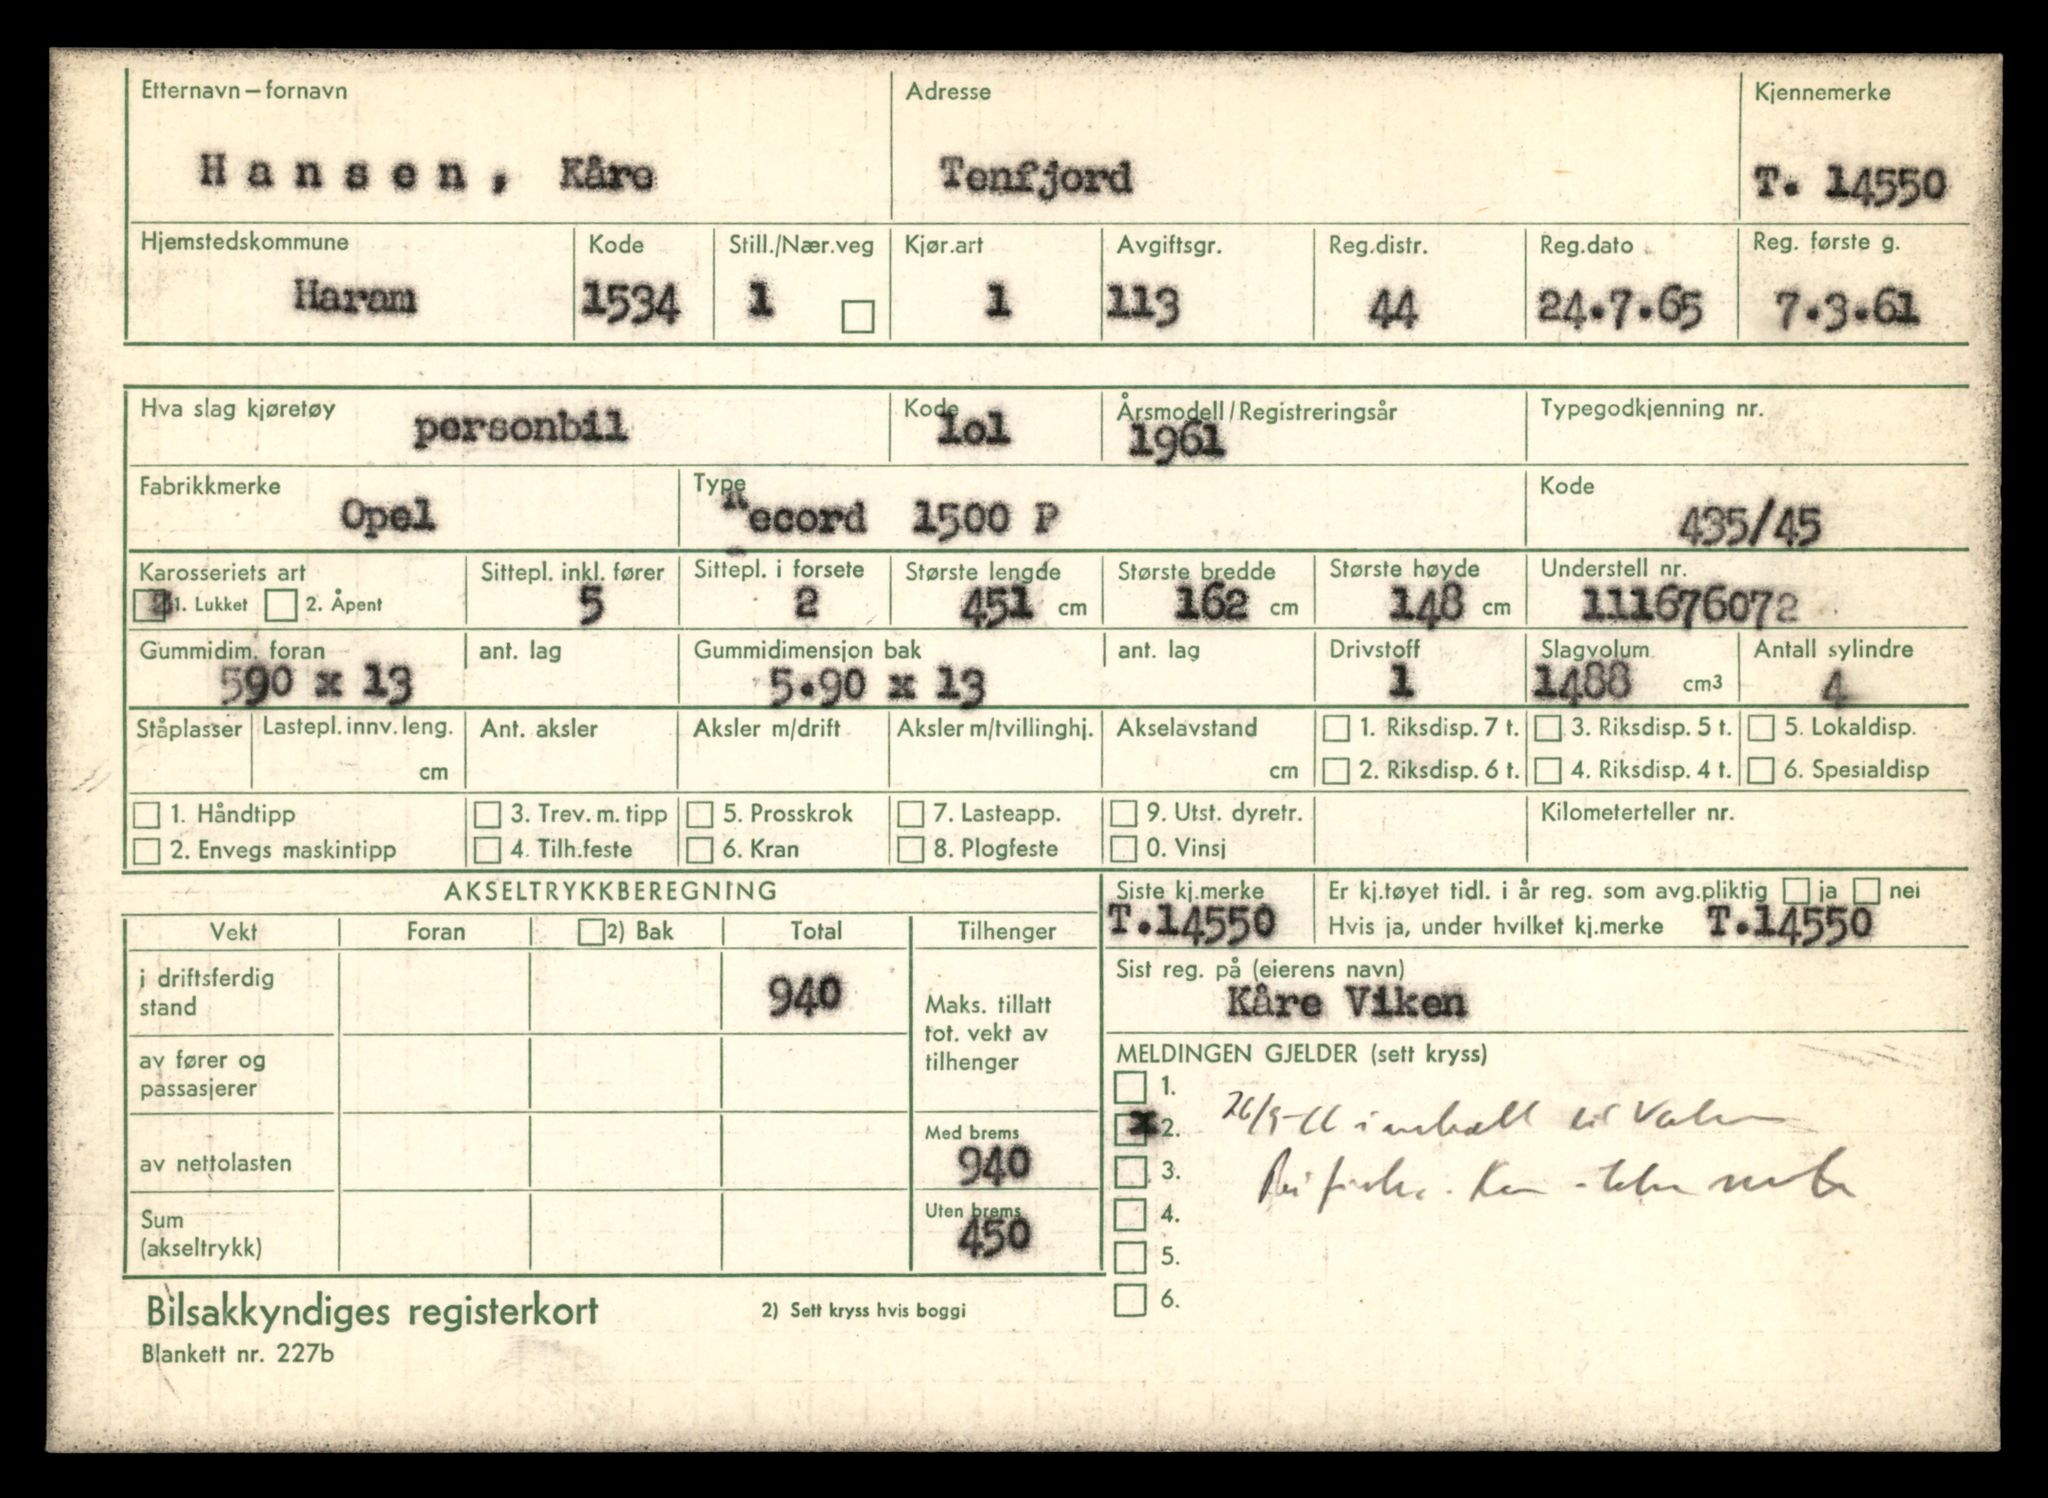 Etternavn – fornavn Adresse Kjennemerke
Hansen, Kåre Tenfjord T. 14550
Hjemstedskommune Kode Still./Nær.veg Kjør.art Avgiftsgr. Reg.distr. Reg.dato Reg. første g.
Haram 1534 1 1 113 44 24.7.65 7.3.61
Hva slag kjøretøy personbil Kode lol Årsmodell/Registreringsår 1961 Typegodkjenning nr.
Fabrikkmerke Type Kode
Opel Record 1500 P 435/45
Karosseriets art Sittepl. inkl. fører Sittepl. i forsete Største lengde Største bredde Største høyde Understell nr.
1. Lukket 2. Åpent 5 2 451 cm 162 cm 148 cm 111676072
Gummidim. foran ant. lag Gummidimensjon bak ant. lag Drivstoff Slagvolum Antall sylindre
590 x 13 5.90 x 13 1 1488 cm3 4
Ståplasser Lastepl. innv. leng. Ant. aksler Aksler m/drift Aksler m/tvillinghj. Akselavstand 1. Riksdisp. 7 t. 3. Riksdisp. 5 t. 5. Lokaldisp.
cm cm 2. Riksdisp. 6 t. 4. Riksdisp. 4 t. 6. Spesialdisp
1. Håndtipp 3. Trev. m. tipp 5. Prosskrok 7. Lasteapp. 9. Utst. dyretr. Kilometerteller nr.
2. Envegs maskintipp 4. Tilh.feste 6. Kran 8. Plogfeste 0. Vinsj
AKSELTRYKKBEREGNING
Vekt Foran 2) Bak Total Tilhenger
i driftsferdig stand 940
Maks. tillatt tot. vekt av tilhenger
av fører og passasjerer
av nettolasten
Med brems
940
Sum (akseltrykk)
Uten brems
450
Siste kj.merke Er kj.tøyet tidl. i år reg. som avg.pliktig ja nei
T.14550 Hvis ja, under hvilket kj.merke T.14550
Sist reg. på (eierens navn)
Kåre Viken
MELDINGEN GJELDER (sett kryss)
1.
x 2.
3.
4.
5.
6.
Bilsakkyndiges registerkort 2) Sett kryss hvis boggi
Blankett nr. 227b